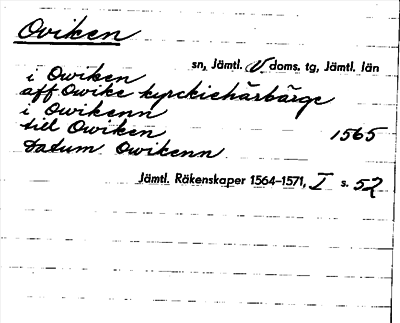 Oviken
sn, Jämtl. V doms. tg, Jämtl. län
i Owiken
aff Owike kyrckiehärbärge
i Owikenn
till Owiken 1565
Datum Owikenn
Jämtl. Räkenskaper 1564–1571, I s. 52